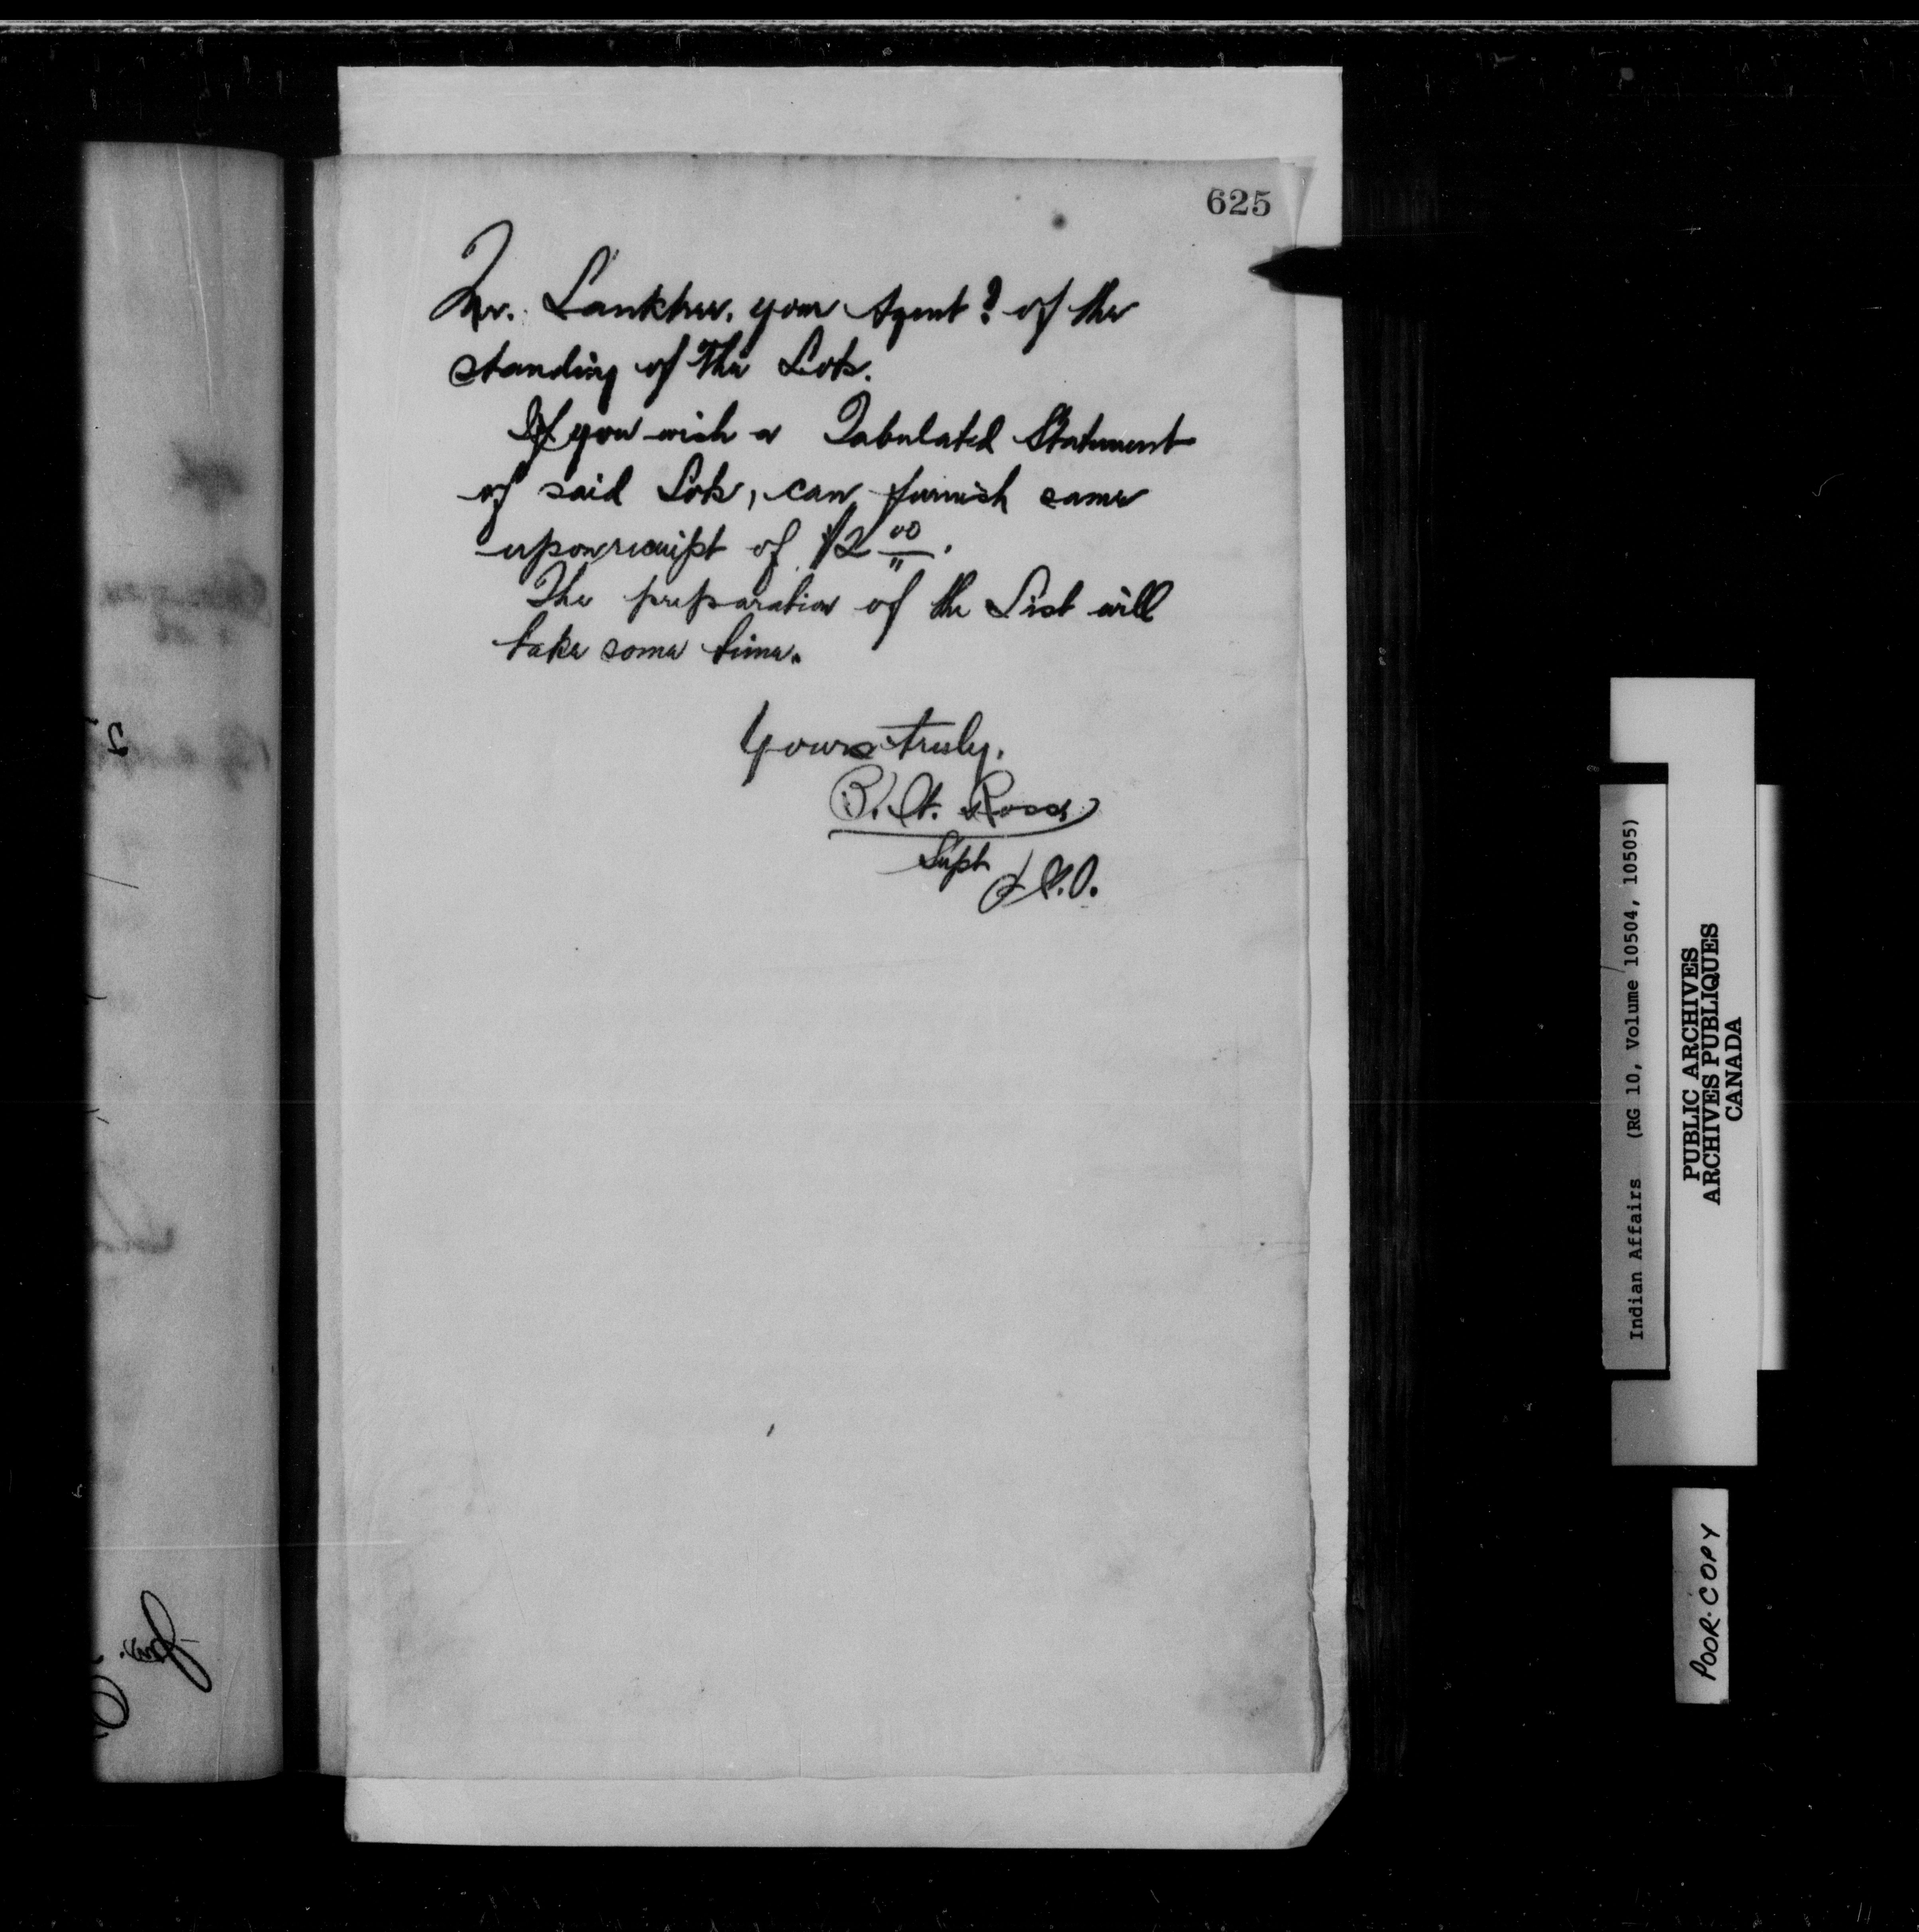 625
Mr. Lanktree, your Agent? of the
standing of the Lots.
If you wish a Tabulated Statement
of said Lots, can furnish same
upon receipt of $2 00/".
The preparation of the List will
take some time.
Yours truly,
Ross
Supt
Indian Affairs (RG 10, Volume 10504, 10505)
PUBLIC ARCHIVES
ARCHIVES PUBLIQUES
CANADA
POOR COPY